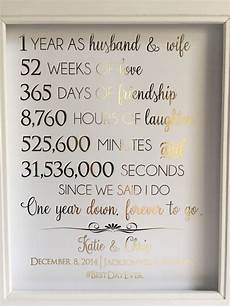 1 YEAR AS husband & wife
52 WEEKS OF love
365 DAYS OF friendship
8,760 HOURS OF laughter
525,600 MINUTES and
31,536,000 SECONDS
SINCE WE SAID I DO
One year down, forever to go...
Katie & Chris
DECEMBER 8, 2014 |
#BESTDAYEVER